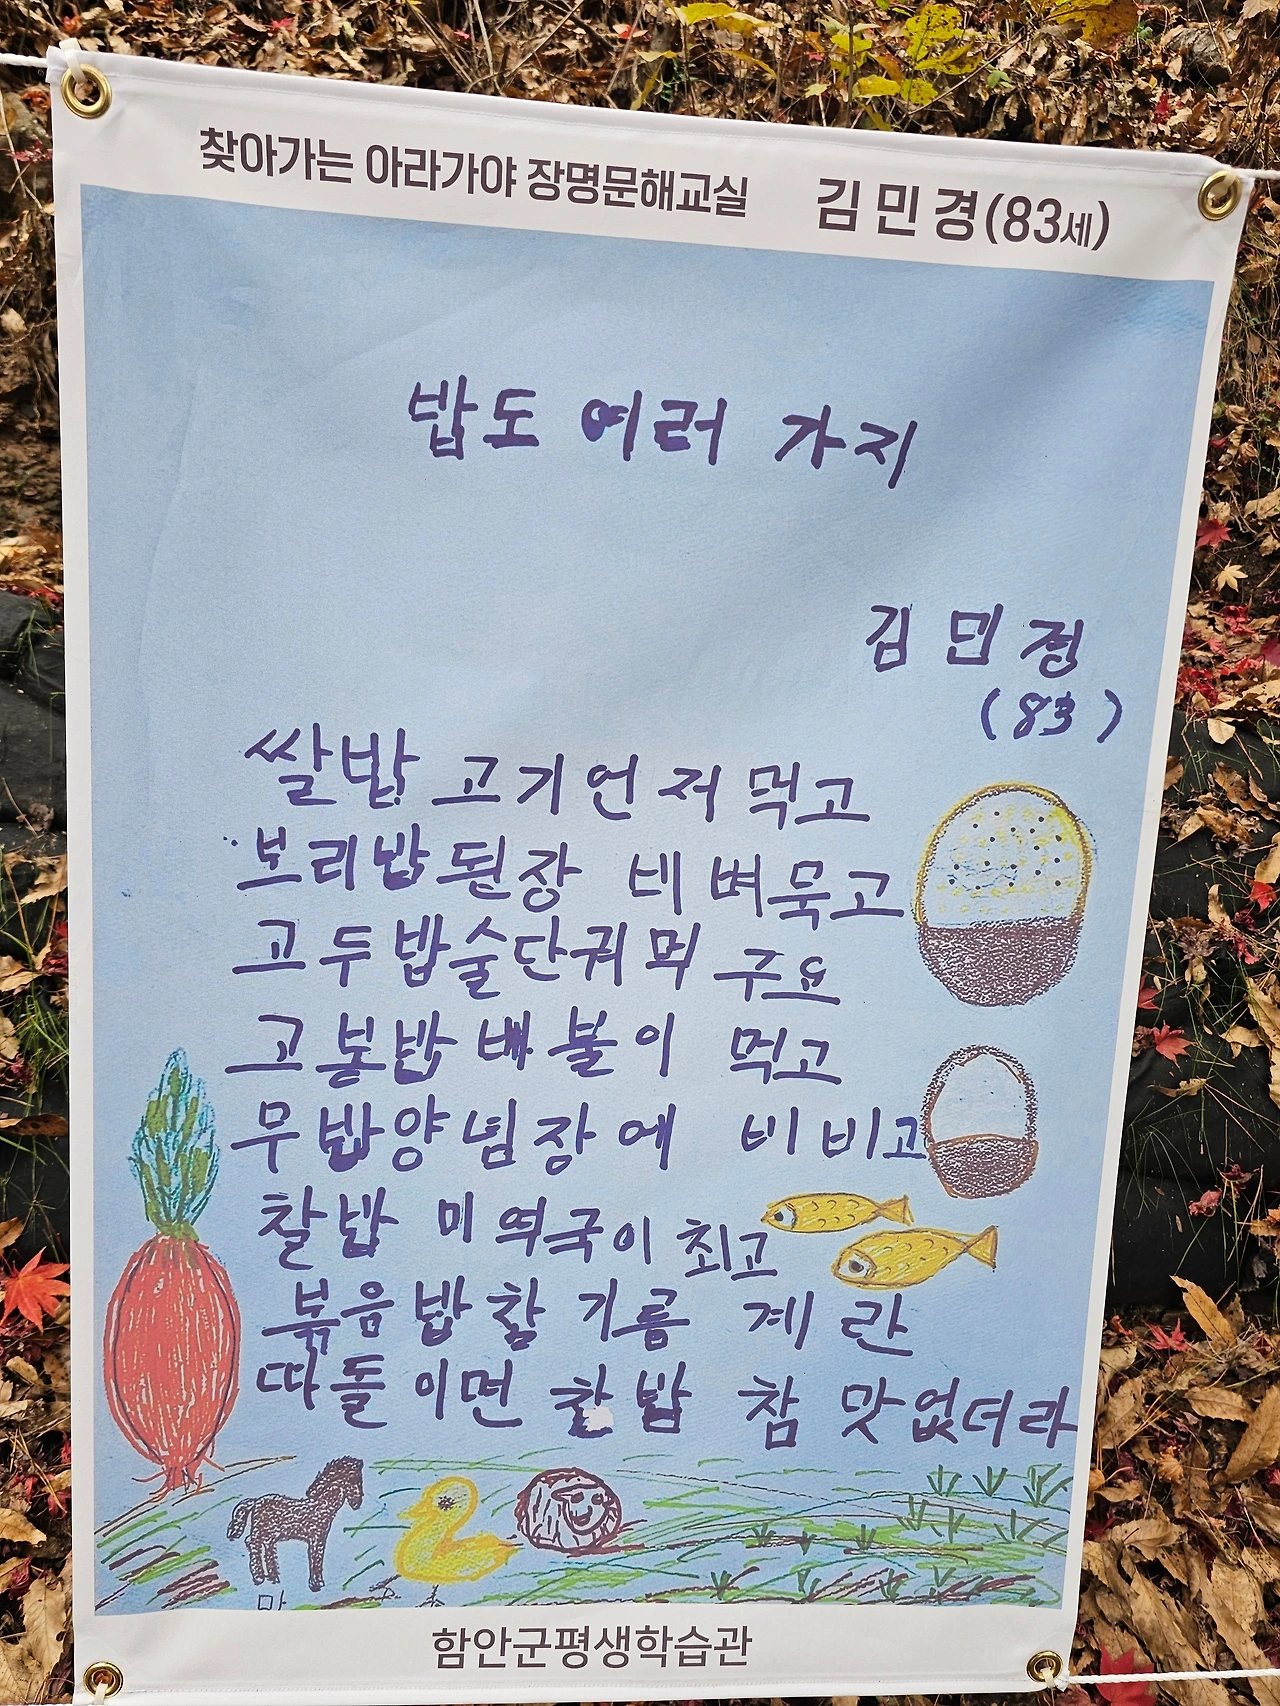 찾아가는 아라가야 장명문해교실 김민경(83세)
밥도 여러 가지
김민정
(83)
쌀밥 고기언저 먹고
보리밥된장 비벼묵고
고두밥술단궈 먹구요
고봉밥 배불이 먹고
무밥양념장에 비비고
찰밥 미역국이 최고
볶음밥참기름 계란
따돌이면 찰밥 참 맛없더라
말
함안군평생학습관